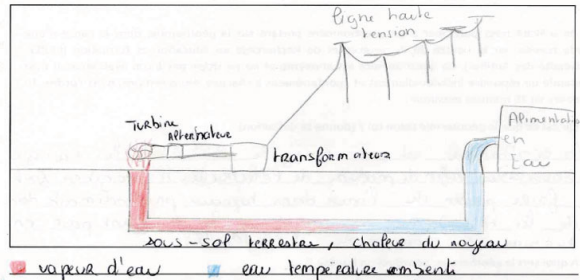 ligne haute
tension
Turbine
Alternateur
transformateur
Alimentation
en
Eau
sous-sol terrestre, chaleur du noyau
vapeur d'eau
eau température ambiente